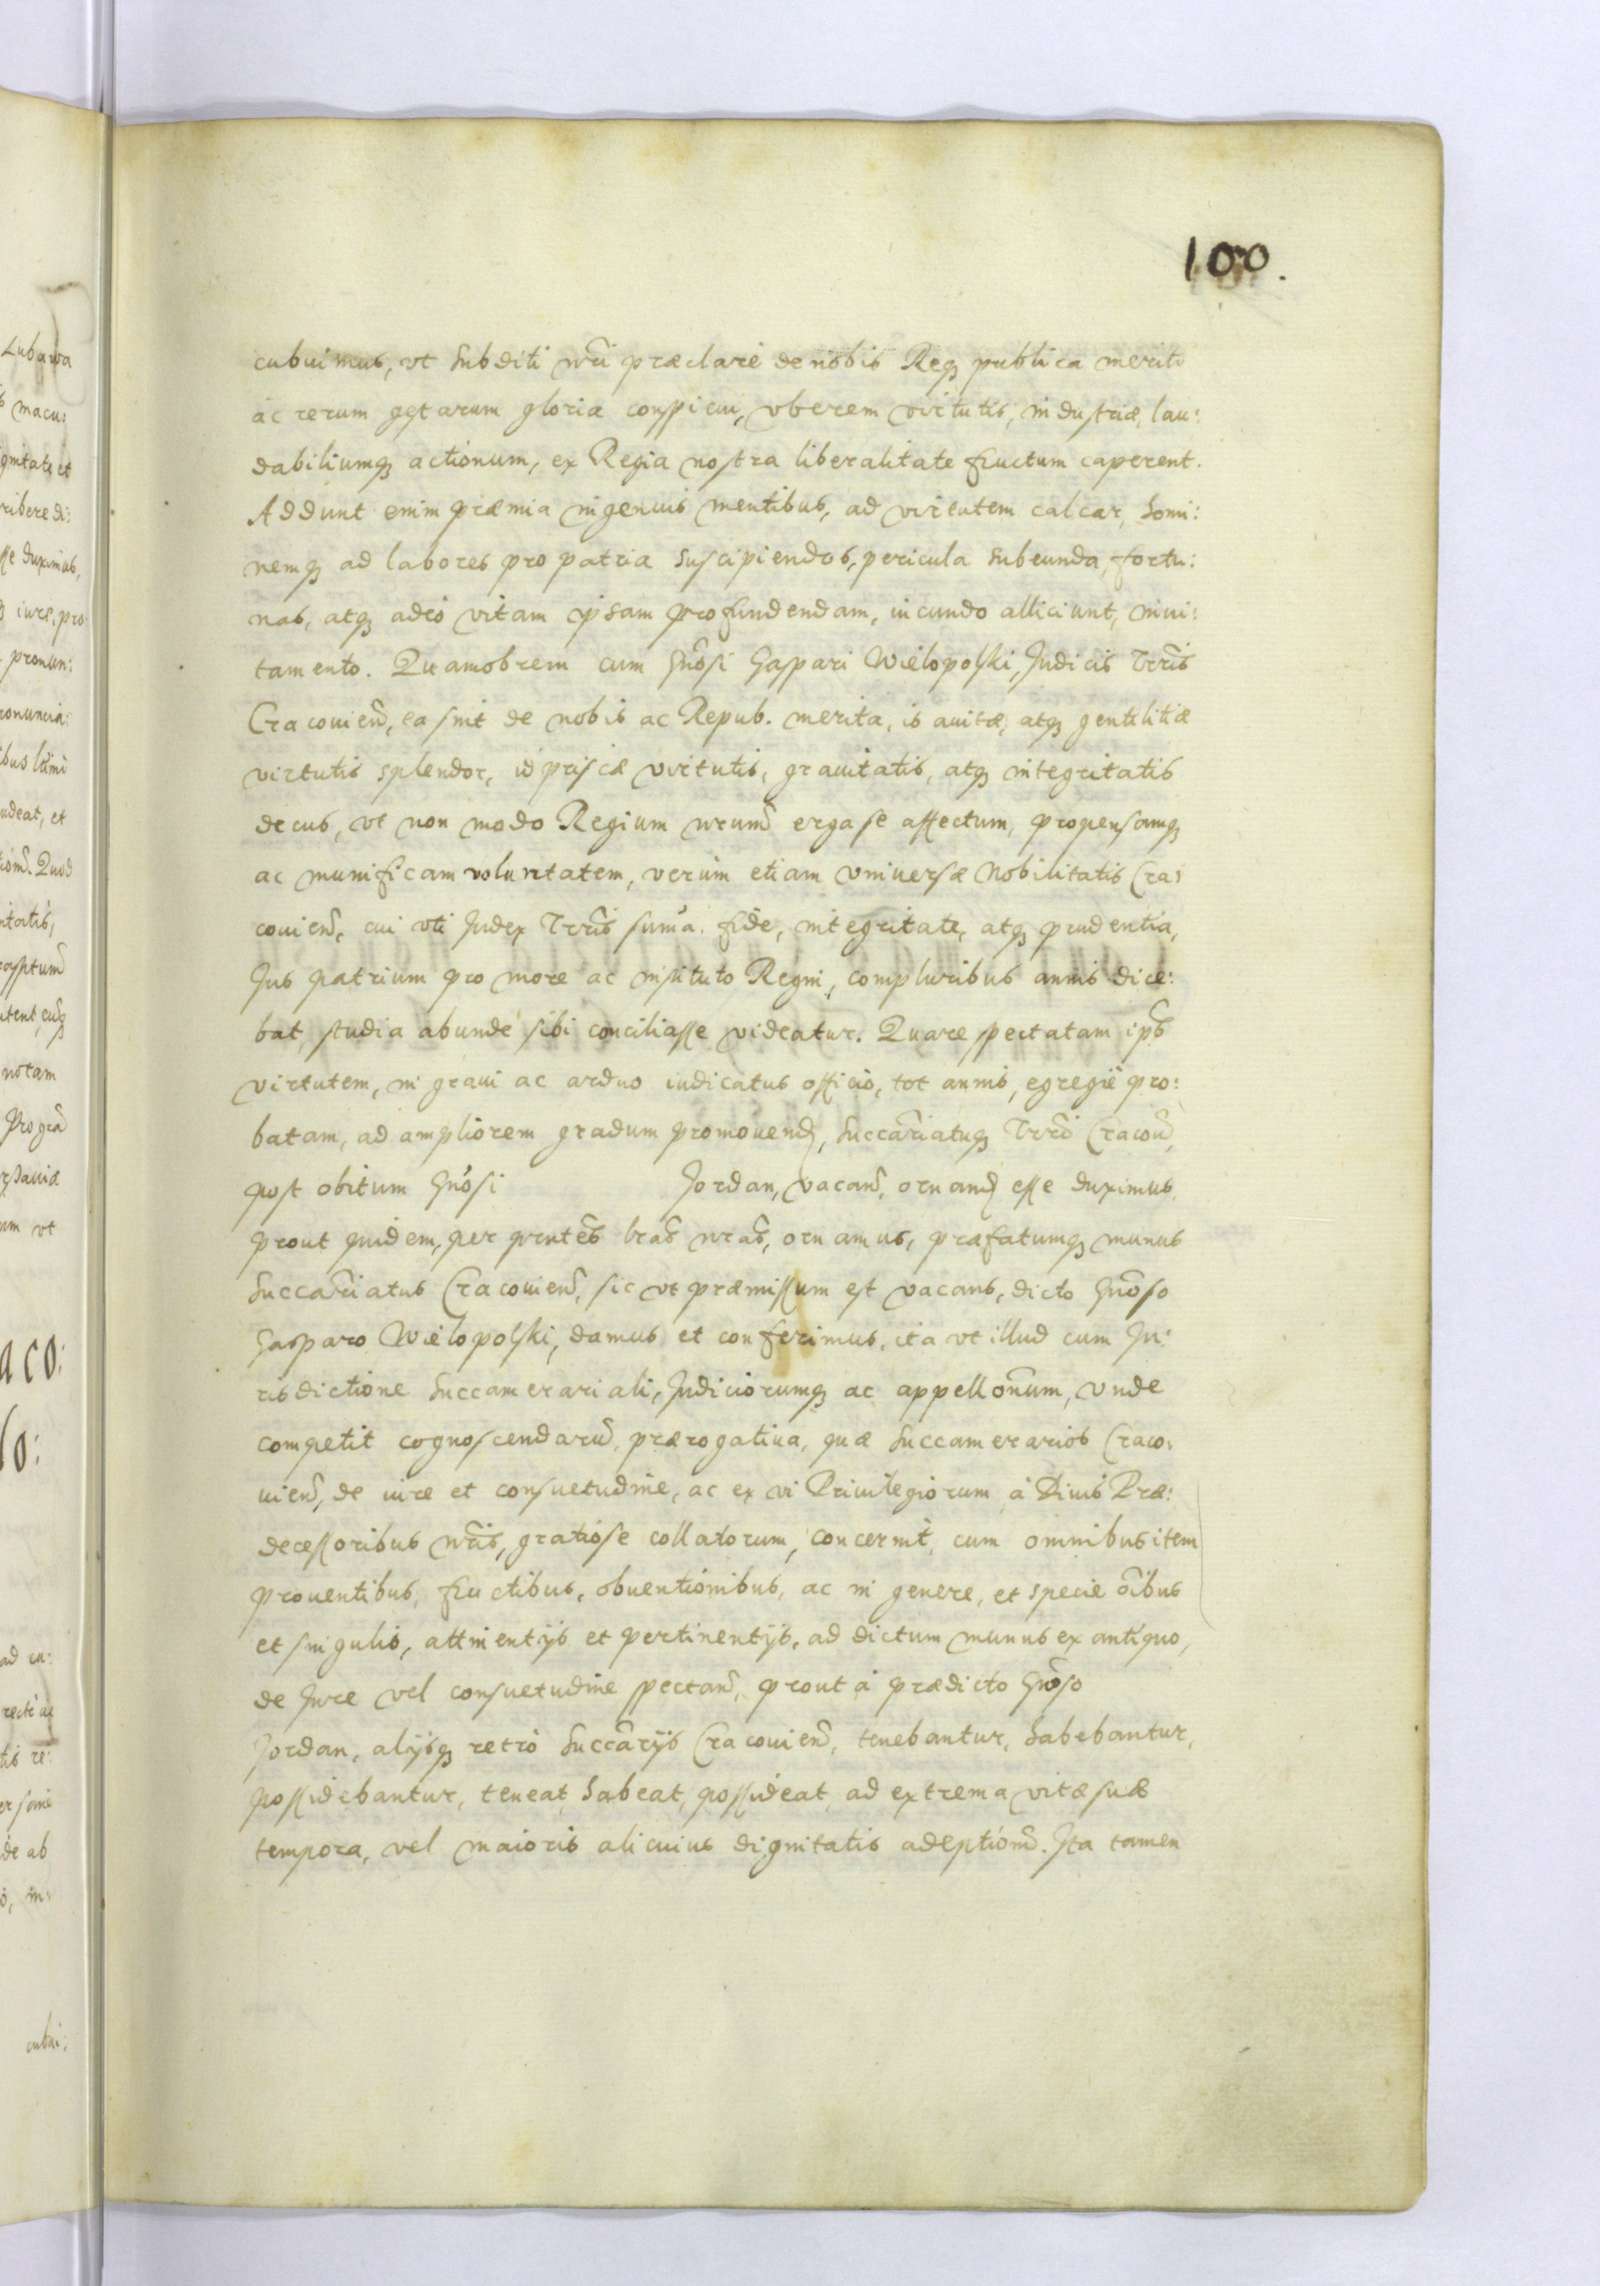 100.
cubuimus, vt subditi nrĩ præclare de nobis Reqꝫ publica meriti
ac rerum gestarum gloria conspicui, vberem virtutis, industriæ, lau:
dabiliumqꝫ actionum, ex Regia nostra liberalitate fructum caperent.
Addunt enim præmia ingenuis mentibus, ad virtutem calcar, homi:
nemqꝫ ad labores pro patria suscipiendos, pericula subeunda, fortu:
nas, atqꝫ adeò vitam ipsam profundendam, iucundo alliciunt, inui:
tamento. Quamobrem cum Gñosi Gaspari Wielopolski, Judicis Trrĩs
Cracouień, ea sint de nobis ac Repub. merita, is auitæ, atqꝫ gentilitiæ
virtutis splendor, id priscæ virtutis, grauitatis, atqꝫ integritatis
decus, vt non modo Regium nrum̃ erga se affectum, propensamqꝫ
ac munificam voluntatem, verùm etiam vniuersæ Nobilitatis Cra:
couień, cui vti Judex Trrĩs sum̃a fide, integritate, atqꝫ prudentia,
Jus patrium pro more ac instituto Regni, compluribus annis dice:
bat, studia abundè sibi conciliasse videatur. Quare spectatam ip̃s
virtutem, in graui ac arduo iudicatus officio, tot annis, egregiè pro:
batam, ad ampliorem gradum promouend, Succar̃iatuqꝫ Trrĩ Cracoũ,
post obitum Gñosi Jordan, vacań, ornand esse duximus,
prout quidem, per prntẽs lrãs nrãs, ornamus, præfatumqꝫ munus
Succar̃iatus Cracouień, sic vt præmissum est vacans, dicto Gñoso
Gasparo Wielopolski, damus et conferimus, ita vt illud cum Ju:
risdictione Succamerariali, Judiciorumqꝫ ac appellõnum, vnde
competit cognoscendarũ, prærogatiua, quæ Succamerarios Craco:
uień, de iure et consuetudine, ac ex vi Priuilegiorum à Diuis Præ:
decessoribus nrĩs, gratiose collatorum, concernit, cum omnibus item
prouentibus, fructibus, obuentionibus, ac in genere, et specie õibus
et singulis, attinentijs et pertinentijs, ad dictum munus ex antiquo,
de Jure vel consuetudine spectań, prout à prædicto Gñoso
Jordan, alijsqꝫ retrò Succãrijs Cracouień, tenebantur, habebantur,
possidebantur, teneat, habeat, possideat, ad extrema vitæ suæ
tempora, vel maioris alicuius dignitatis adeptionẽ. Ita tamen